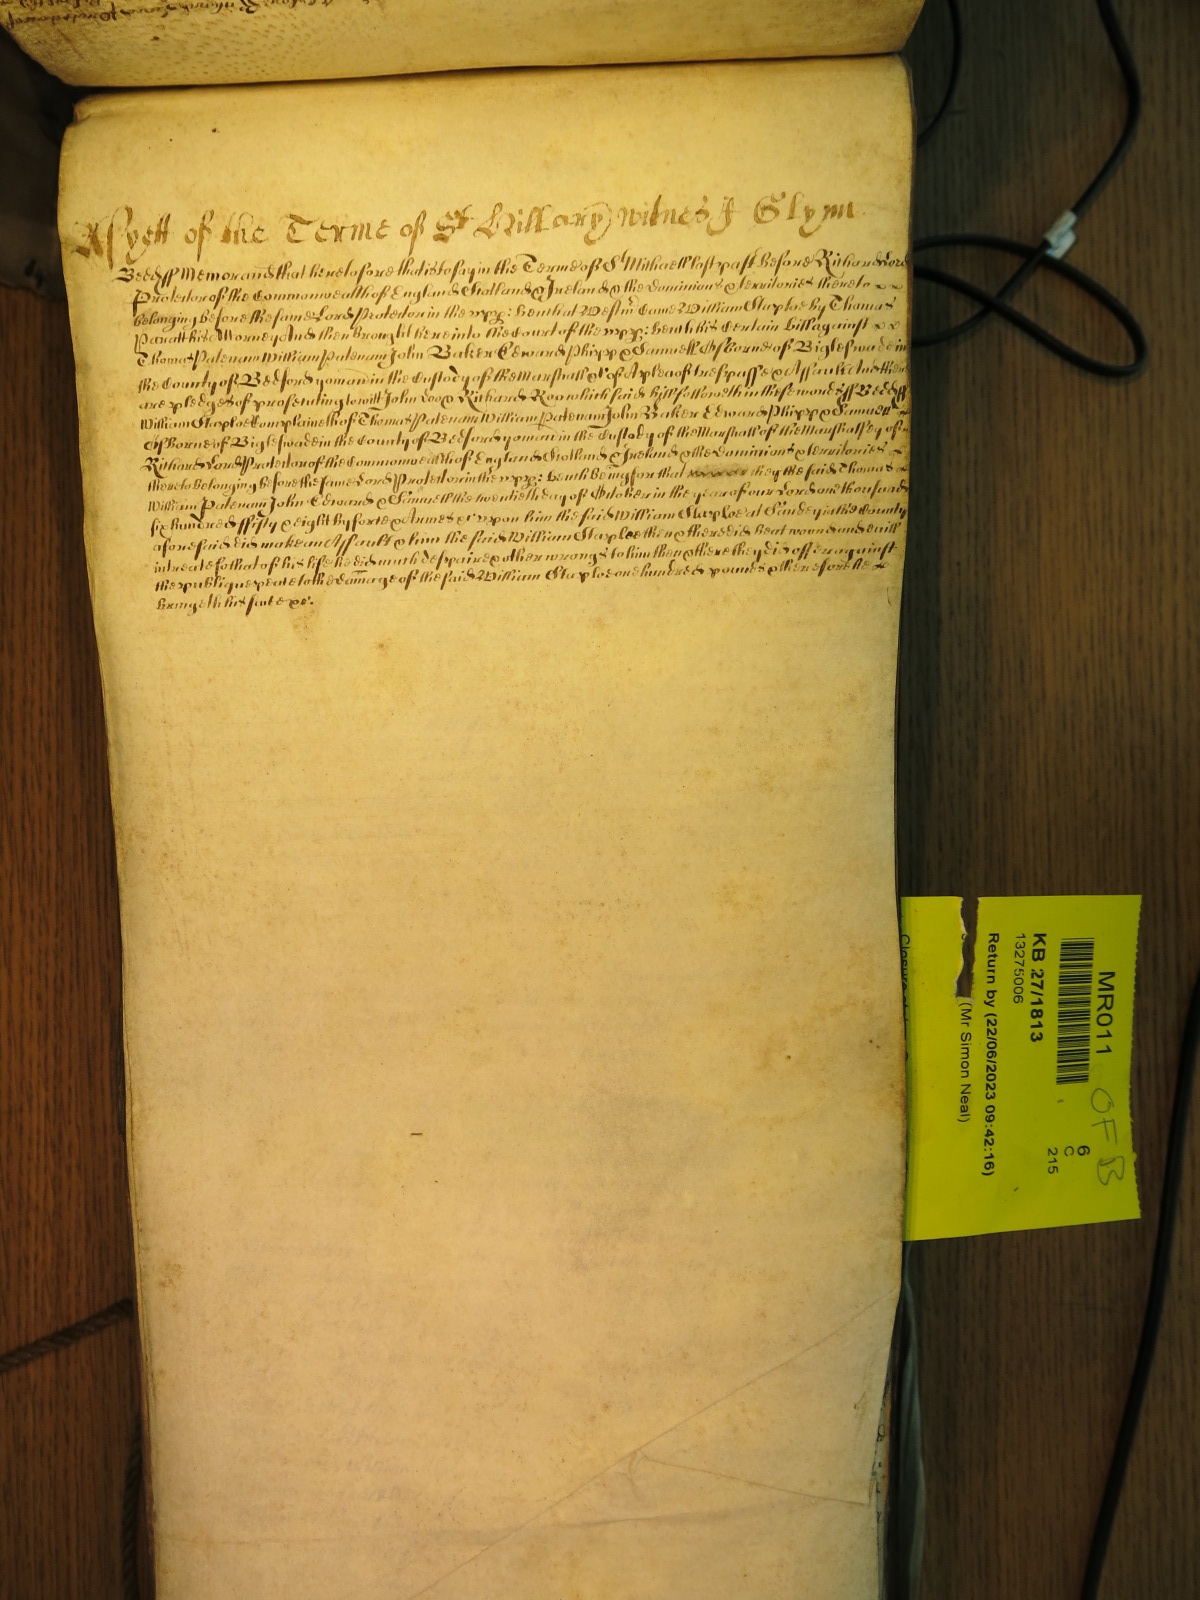 As yett of the Terme of St Hillary witnes J Glynn
Bedd ss Memorand that heretofore that is to say in the Terme of St Michaell last past before Richard Lord
Protector of the Commonwealth of England Scotland & Ireland & the dominions & territories thereto
belonging before the same Lord Protector in the upp: bench at Westm Came William Staploe by Thomas
his Attorney And then brought here into the Court of the upp: bench his Certain bill against
Thomas Patenam William Patenam John Baker Edward Phipp & Samuell Osborne of Bigleswade in
the County of Bedford yoman in the Custody of the Marshall &c of A plea of trespasse & Assault And there
are pledges of prosecuting to witt John Doo & Richard Roo which said bill followeth in these words ss Bedd ss
William Staploe complaineth of Thomas Patenam William Patenam John Baker Edward Phipp & Samuell
Osborne of Bigleswade in the County of Bedford yoman in the Custody of the Marshall of the Marshalsey of
Richard Lord Protector of the Commonwealth of England Scotland & Ireland & the Dominions & territories
thereto belonging before the same Lord Protector in the upp: bench being for that they the said Thomas
William Patenam John Edward & Samuell the twentieth day of October in the year of our Lord one thousand
six hundred fifty & eight by force & Armes &c upon him the said William Staploe at Sandey in the County
aforesaid did make an Assault & him the said William Staploe then & there did beat wound and evill
intreate so that of his life he did much despaire & other wrongs to him then & there they did offer against
the publique peace to the damage of the said William Staploe one hundred pounds & therefore he
bringeth his suite &c.
MR011
OF B
6
C
215
KB 27/1813
13275006
Return by (22/06/2023 09:42:16)
(Mr Simon Neal)